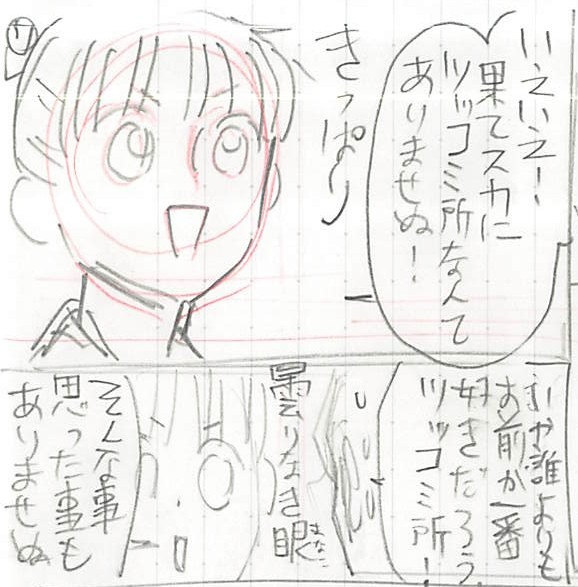 いえいえ!
果てスカに
ツッコミ所なんて
ありませぬ!
きっぱり
いや誰よりも
お前が一番
好きだろう
ツッコミ所!
曇りなき眼
まなこ
そんな事
思った事も
ありませぬ